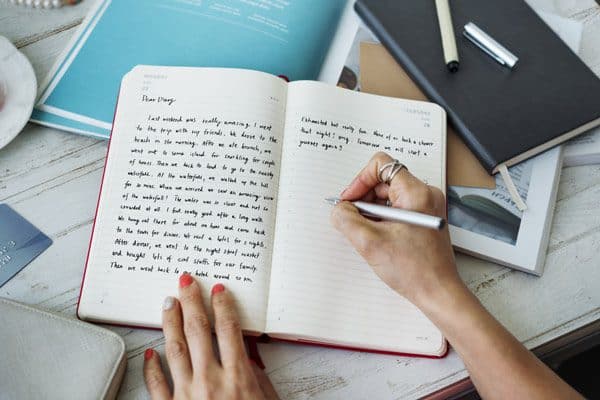 Dear Diary,
Last weekend was really amazing. I went
to the trip with my friends. We drove to the
beach in the morning. After we ate brunch, we
went out to some island for snorkling for couple
of times. Then we back to land to go to the nearby
waterfalls. At the waterfalls, we walked up hill
for 30 mins. When we arrived we saw an amazing view
of the waterfalls! The water was so clear and not
crowded at all. I feel really good after a long walk.
We hung out there for about an hour and came back
to the town for dinner. We rent a hotel for 2 nights.
After dinner, we went to the night street market
and bought lots of cool stuffs for our family.
Then we went back to hotel around 10 pm.
Exhausted but really fun. Three of us have a shower
that night! Tomorrow we will start a
journey again!